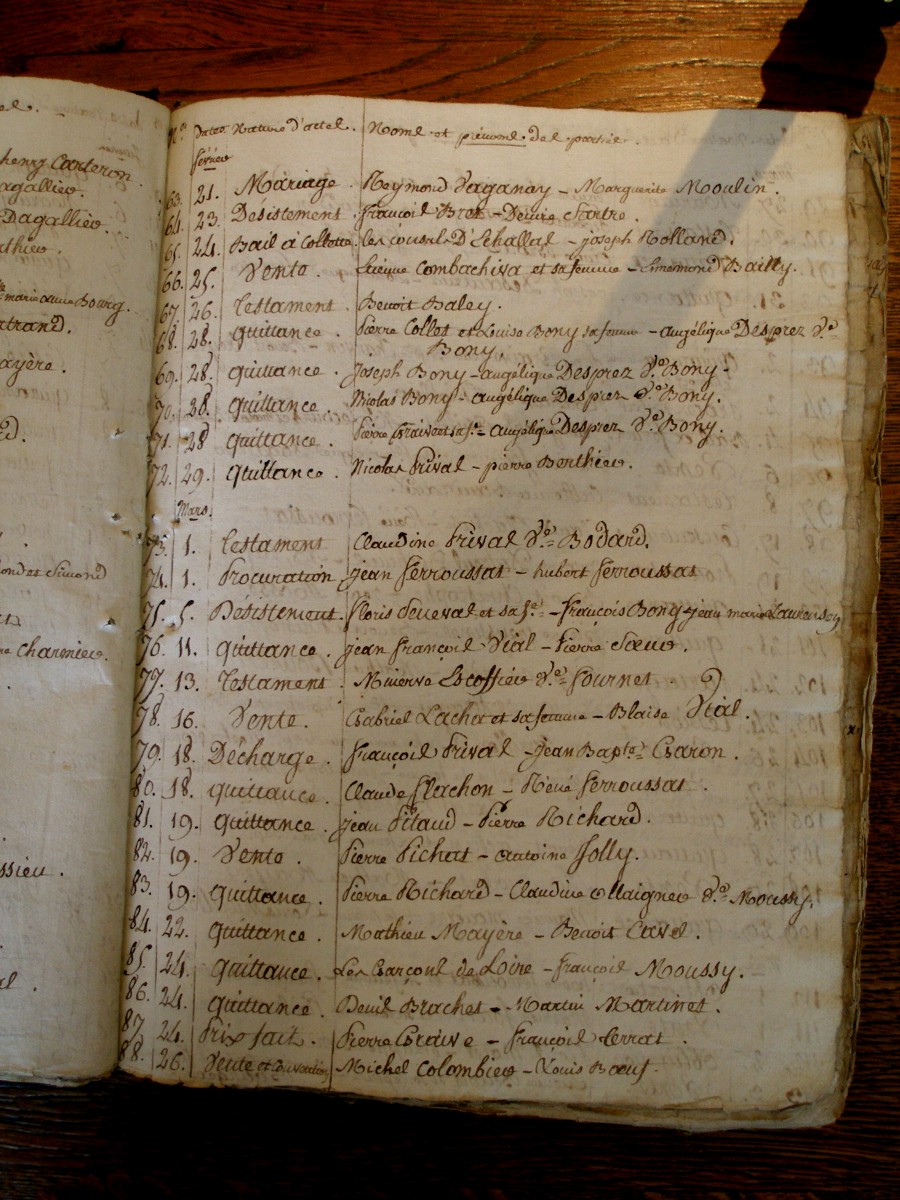 el.
henry Carteron
agallier.
Dagallier.
athieu.
marie anne Bourg.
atrand.
ayère.
d.
ond et Simond
Charenier.
ssieu.
al.
N.os Dates Nature d'actes. Noms et prénoms des parties.
février
63. 21. Mariage Reymond Vaganay - Marguerite Moulin.
64. 23. Désistement. françois Brot - Denise Sartre.
65. 24. Bail à Les consuls D'Echallas - joseph Rolland.
66. 25. Vente. Etienne Combachiva et sa femme - Bailly.
67. 26. testament Benoit Baley.
68. 28. quittance Pierre Collet et Louise Bony sa femme - angélique Desprez V.e
Bony.
69. 28. quittance. Joseph Bony - angélique Desprez V.e Bony.
70. 28. quittance. Nicolas Bony - angélique Desprez V.e Bony.
71. 28 quittance. Pierre et sa f.e - angélique Desprez V.e Bony.
72. 29. quittance. Nicolas Prival - pierre Berthieu.
Mars.
73. 1. testament Claudine Prival V.e Bodard.
74. 1. Procuration jean ferroussat - hubert ferroussat
75. 5. Désistement. floris et sa f.e - françois Bony - jean marie
76. 11. quittance. jean françois Vial - Pierre
77. 13. testament. Minerve Escoffier V.e fournet.
78. 16. Vente. Gabriel Lachat et sa femme - Blaise Vial.
79. 18. Décharge. françois Prival - Jean Bap.te Garon.
80. 18. quittance. Claude flachon - René ferroussat.
81. 19. quittance. jean Pitaud - Pierre Richard.
82. 19. Vente. Pierre Pichat - antoine Jolly.
83. 19. quittance. Pierre Richard - Claudine V.e Moussy.
84. 22. quittance. Mathieu Mayère - Benoît Cavel.
85. 24. quittance. Les Garçons de Loire - françois Moussy.
86. 24. quittance. Denis Brachet - Martin Martinet.
87. 24. Prix fait. Pierre Graive - françois terrat.
88. 26. Vente et Michel Colombier - Louis Boeuf.